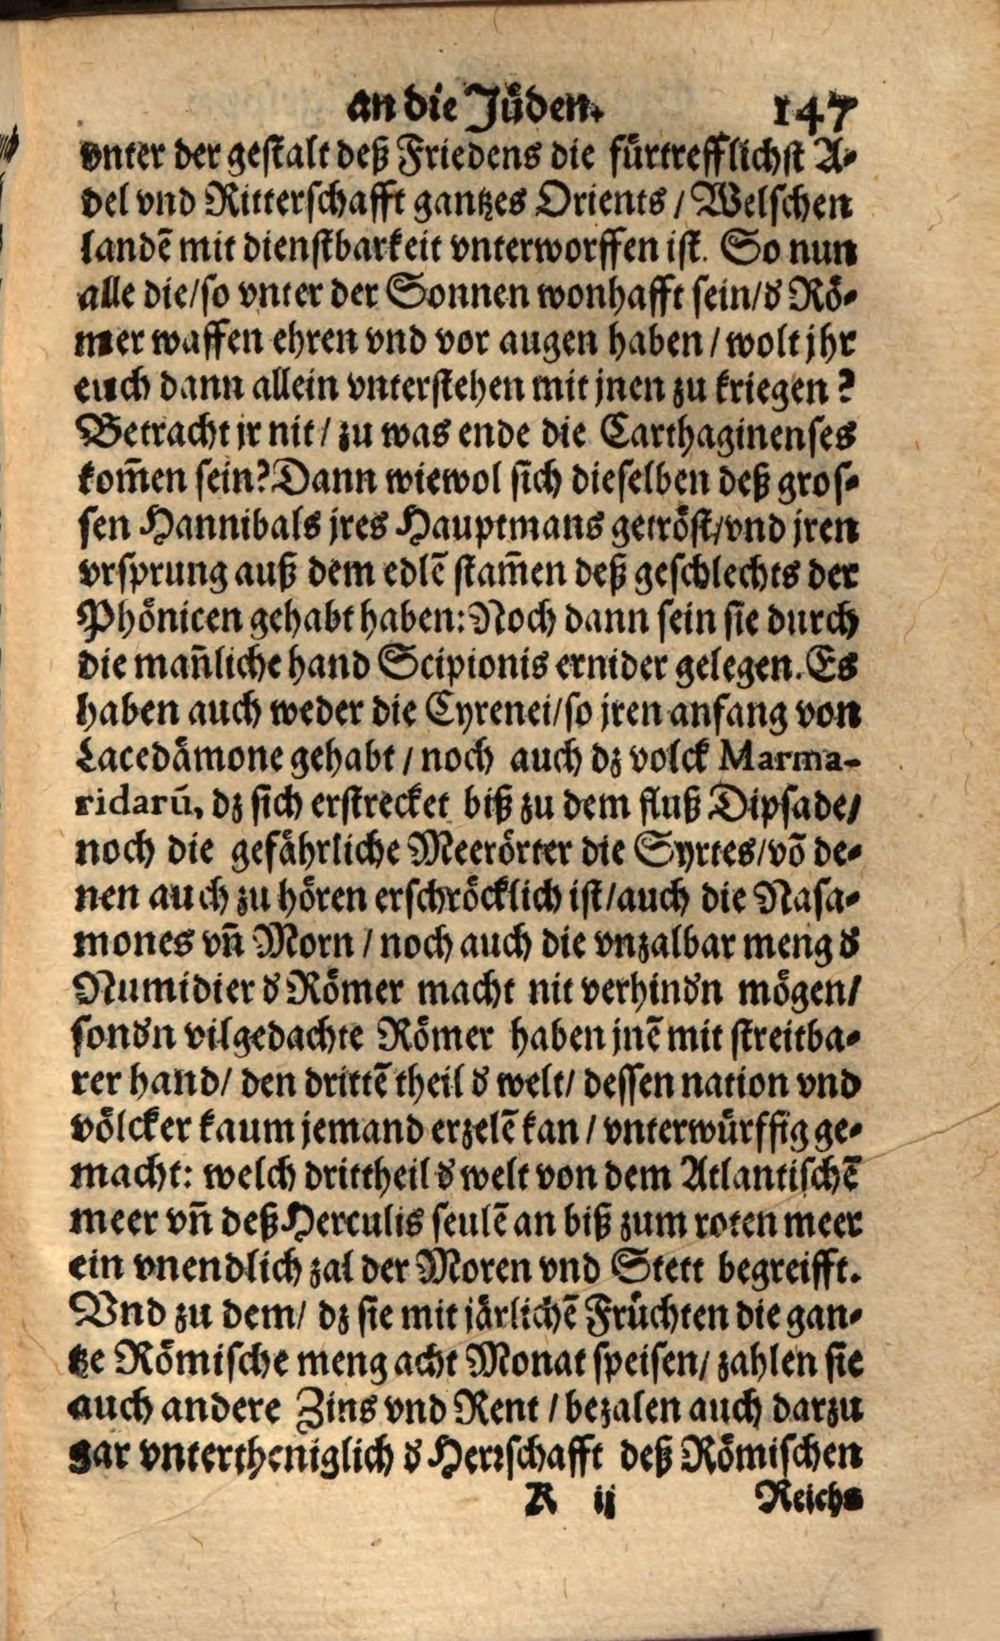 an die Jüden. 147
vnter der gestalt deß Friedens die fürtrefflichst A⸗
del vnd Ritterschafft gantzes Orients / Welschen
landē mit dienstbarkeit vnterworffen ist. So nun
alle die/so vnter der Sonnen wonhafft sein/d̕ Rö⸗
mer waffen ehren vnd vor augen haben / wolt jhr
euch dann allein vnterstehen mit jnen zu kriegen?
Betracht jr nit / zu was ende die Carthaginenses
kom̄en sein? Dann wiewol sich dieselben deß gros⸗
sen Hannibals jres Hauptmans getröst/vnd jren
vrsprung auß dem edlē stam̄en deß geschlechts der
Phönicen gehabt haben: Noch dann sein sie durch
die man̄liche hand Scipionis ernider gelegen. Es
haben auch weder die Cyrenei/so jren anfang von
Lacedämone gehabt / noch auch dz volck Marma-
ridarū, dz sich erstrecket biß zu dem fluß Dipsade/
noch die gefährliche Meerörter die Syrtes/vō de⸗
nen auch zu hören erschröcklich ist/auch die Nasa⸗
mones vn̄ Morn / noch auch die vnzalbar meng d̕
Numidier d̕ Römer macht nit verhind̕n mögen/
sond̕n vilgedachte Römer haben jnē mit streitba⸗
rer hand/ den drittē theil d̕ welt/ dessen nation vnd
völcker kaum jemand erzelē kan / vnterwürffig ge⸗
macht: welch drittheil d̕ welt von dem Atlantischē
meer vn̄ deß Herculis seulē an biß zum roten meer
ein vnendlich zal der Moren vnd Stett begreifft.
Vnd zu dem/ dz sie mit järlichē Früchten die gan⸗
tze Römische meng acht Monat speisen/ zahlen sie
auch andere Zins vnd Rent / bezalen auch darzu
gar vntertheniglich d̕ Herꝛschafft deß Römischen
R ij Reichs